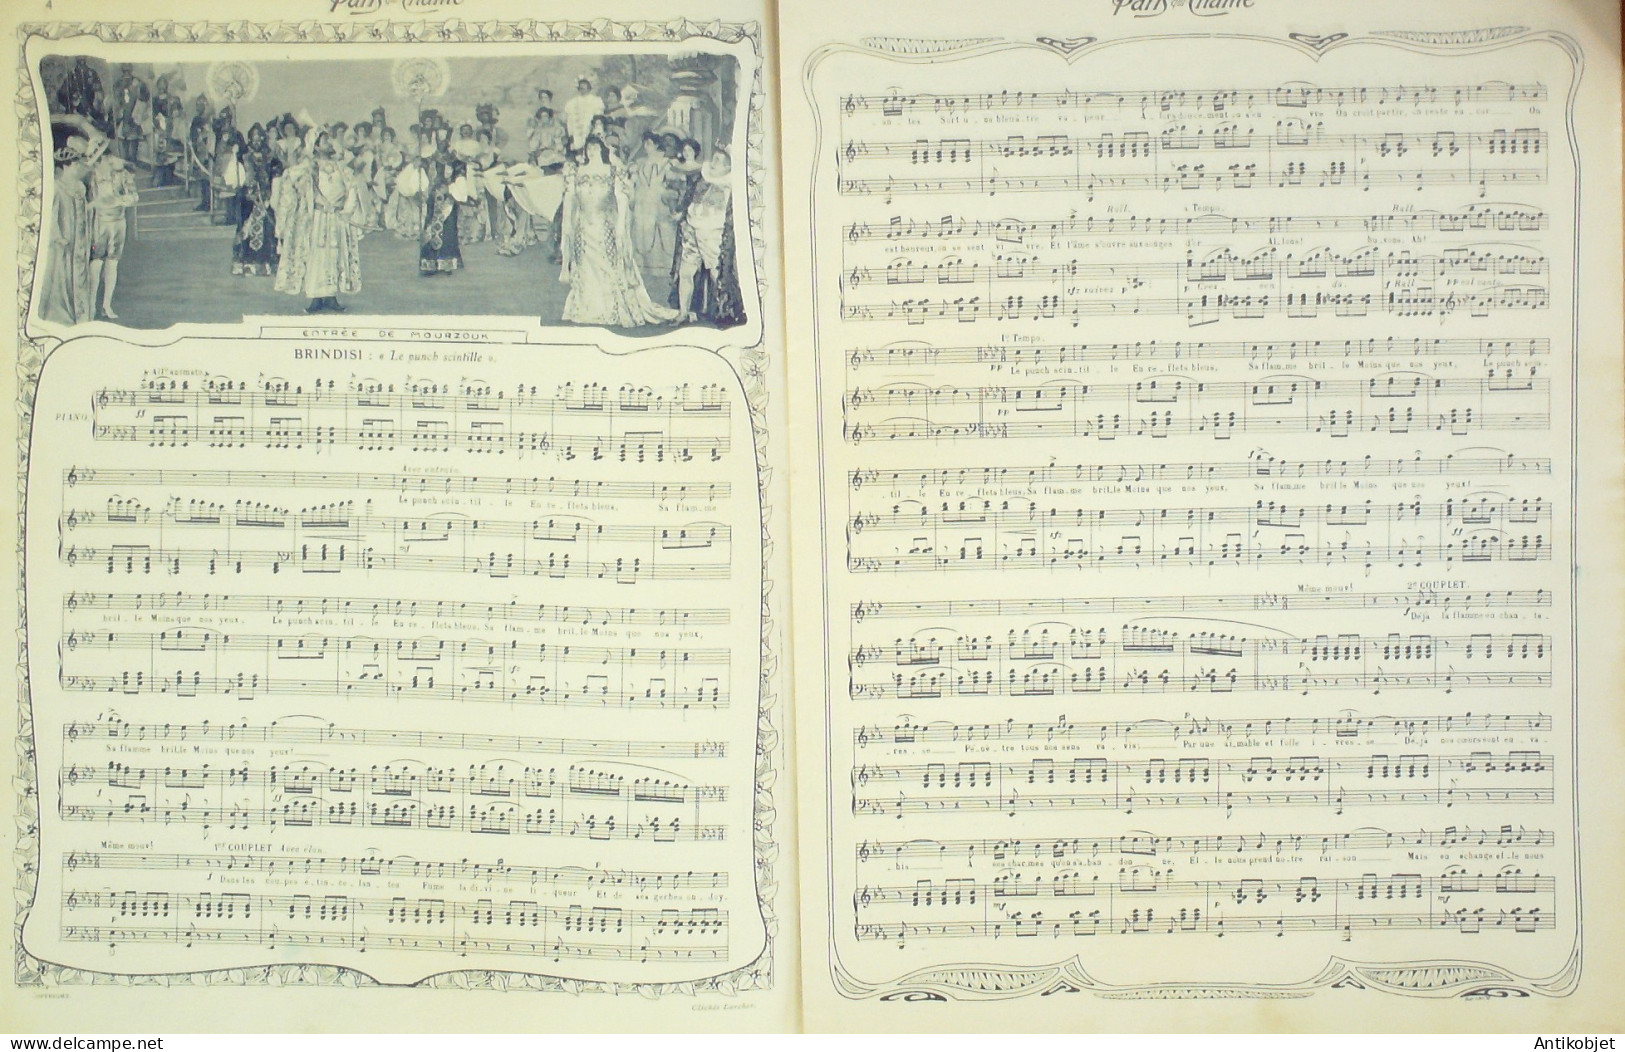 4
Paris qui Chante
ENTRÉE DE MOURZOUK
BRINDISI : « Le punch scintille ».
All° animato.
PIANO.
ff
Avec entrain.
Le punch scin_til _ le En re_flets bleus, Sa flam_me
mf
bril_le Moins que nos yeux, Le punch scin_til _ le En re_flets bleus, Sa flam_me bril_le Moins que nos yeux,
sfz
f
Sa flamme bril_le Moins que nos yeux!
f
ff
Même mouv!
1er COUPLET Avec élan.
f Dans les coupes é_tin_ce_lan_tes Fume la di_vi_ne li_queur Et de ses gerbes on_doy_
p
Clichés Larcher.
Paris qui Chante
_an_tes Sort u_ne bleuâ_tre va_peur A_lors douce_ment on s'en_i_vre On croit partir, on reste en_cor On
Rall. a Tempo. Rall.
est heureux, on se sent vi_vre. Et l'âme s'ouvre aux songes d'or. Al_lons! bu_vons, Ah!
sfz suivez p p Cres_cen_do. f Rall. pp col canto.
1er Tempo.
pp Le punch scin_til _ le En re_flets bleus, Sa flam_me bril_le Moins que nos yeux, Le punch scin_
pp
_til _ le En re_flets bleus, Sa flam_me bril_le Moins que nos yeux, Sa flam_me bril_le Moins que nos yeux!
f
sfz
ff
Même mouv! 2e COUPLET.
f Déjà la flamme en chan_te_
p
_res_se Pé_nè_tre tous nos sens ra_vis; Par une ai_mable et folle i_vres_se Dé_jà nos cœurs sont en_va_
p
_his A ses charmes qu'on s'a_ban_don_ne, El_le nous prend no_tre rai_son Mais en échange el_le nous
mf
p
mf